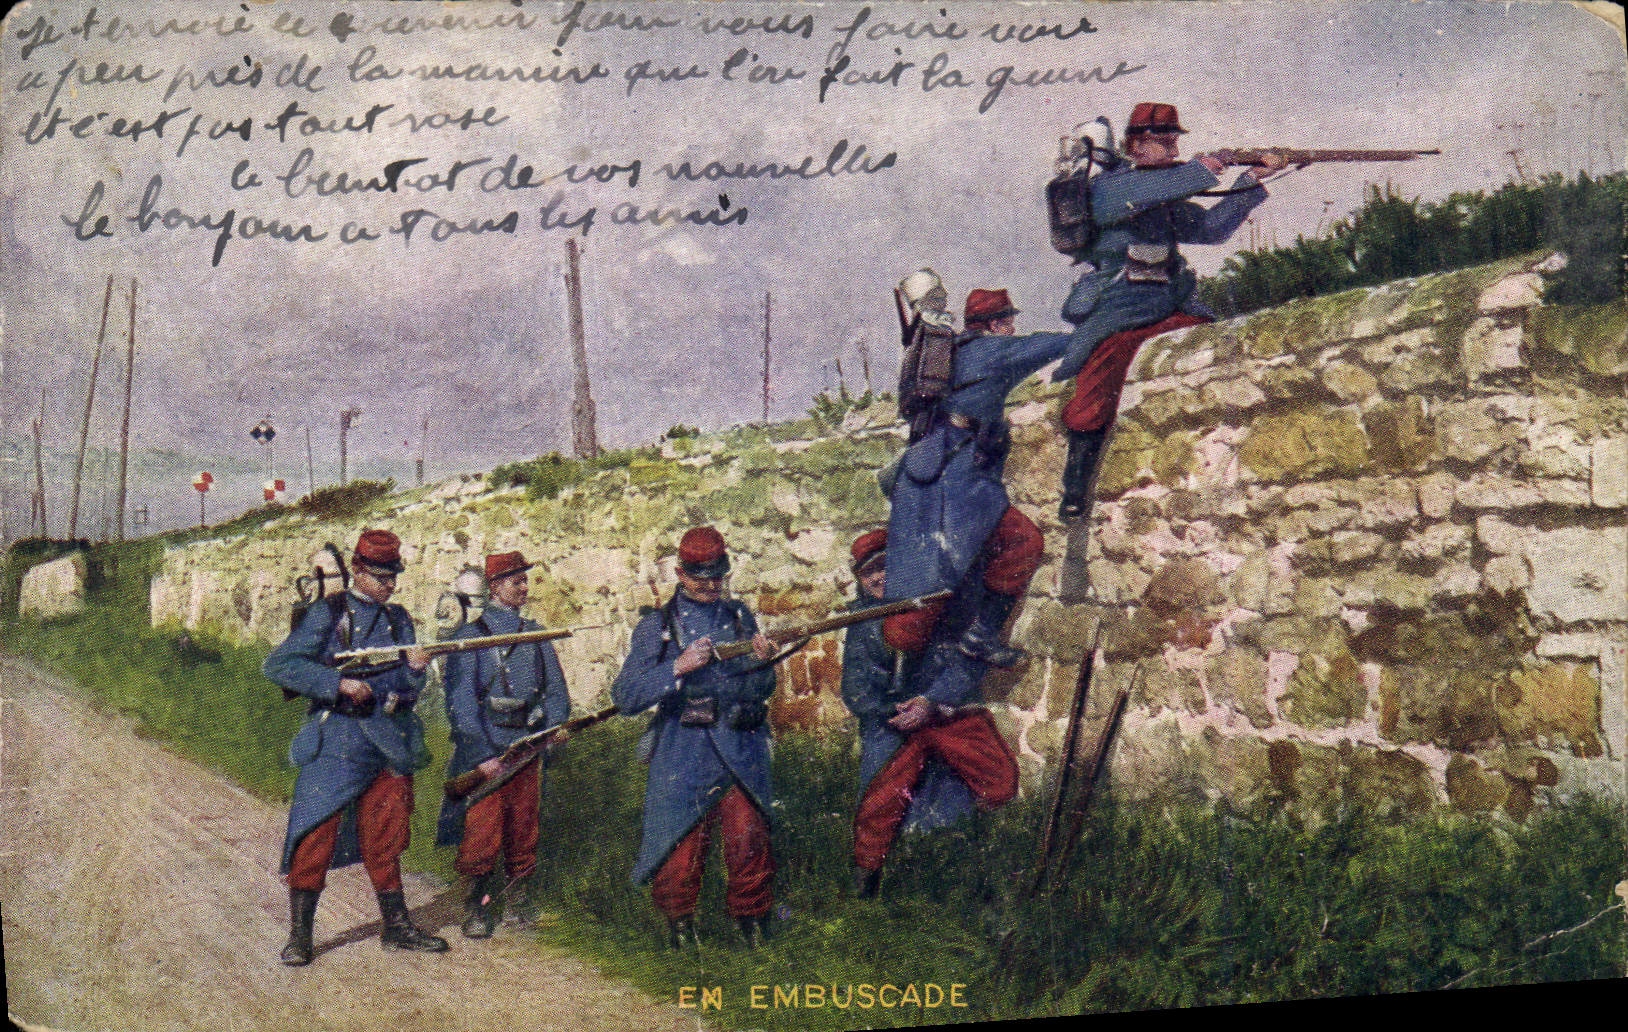 je t envoie ce souvenir pour vous faire voir
a peu près de la maniere que l'on fait la guerre
et c'est pas tout rose
a bientot de vos nouvelles
le bonjour a tous les amis
EN EMBUSCADE